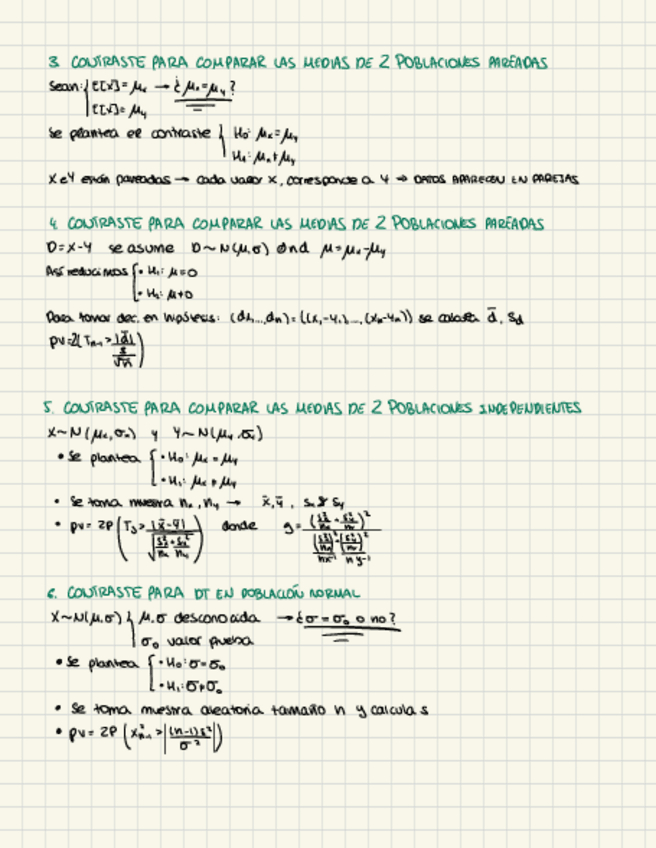 3. CONTRASTE PARA COMPARAR LAS MEDIAS DE 2 POBLACIONES PAREADAS
Sean: { E[X] = μx → ¿μx = μy?
E[Y] = μy
Se plantea el contraste { H0: μx = μy
H1: μx ≠ μy
X e Y están pareadas → cada valor X, corresponde a Y ⇒ DATOS APARECEN EN PAREJAS
4. CONTRASTE PARA COMPARAR LAS MEDIAS DE 2 POBLACIONES PAREADAS
D = X-Y se asume D ~ N(μ,σ) μ = μx - μy
Así reducimos { • H0: μ = 0
• H1: μ ≠ 0
Para tomar dec. en hipótesis: (d1,...,dn) = ((x1-y1),...,(xn-yn)) se calcula d̄, sd
pv = 2P(Tn-1 > |d̄| / (s/√n))
5. CONTRASTE PARA COMPARAR LAS MEDIAS DE 2 POBLACIONES INDEPENDIENTES
X ~ N(μx, σx) y Y ~ N(μy, σy)
• Se plantea { • H0: μx = μy
• H1: μx ≠ μy
• Se toma muestra nx, ny → x̄, ȳ, sx y sy
• pv = 2P(Tg > |x̄-ȳ| / √(sx²/nx + sy²/ny)) donde g = (sx²/nx + sy²/ny)² / ((sx²/nx)²/(nx-1) + (sy²/ny)²/(ny-1))
6. CONTRASTE PARA DT EN POBLACIÓN NORMAL
X ~ N(μ,σ) { μ,σ desconocida → ¿σ = σ0 o no?
σ0 valor prueba
• Se plantea { • H0: σ = σ0
• H1: σ ≠ σ0
• Se toma muestra aleatoria tamaño n y calcula s
• pv = 2P(X²n-1 > |(n-1)s² / σ²|)